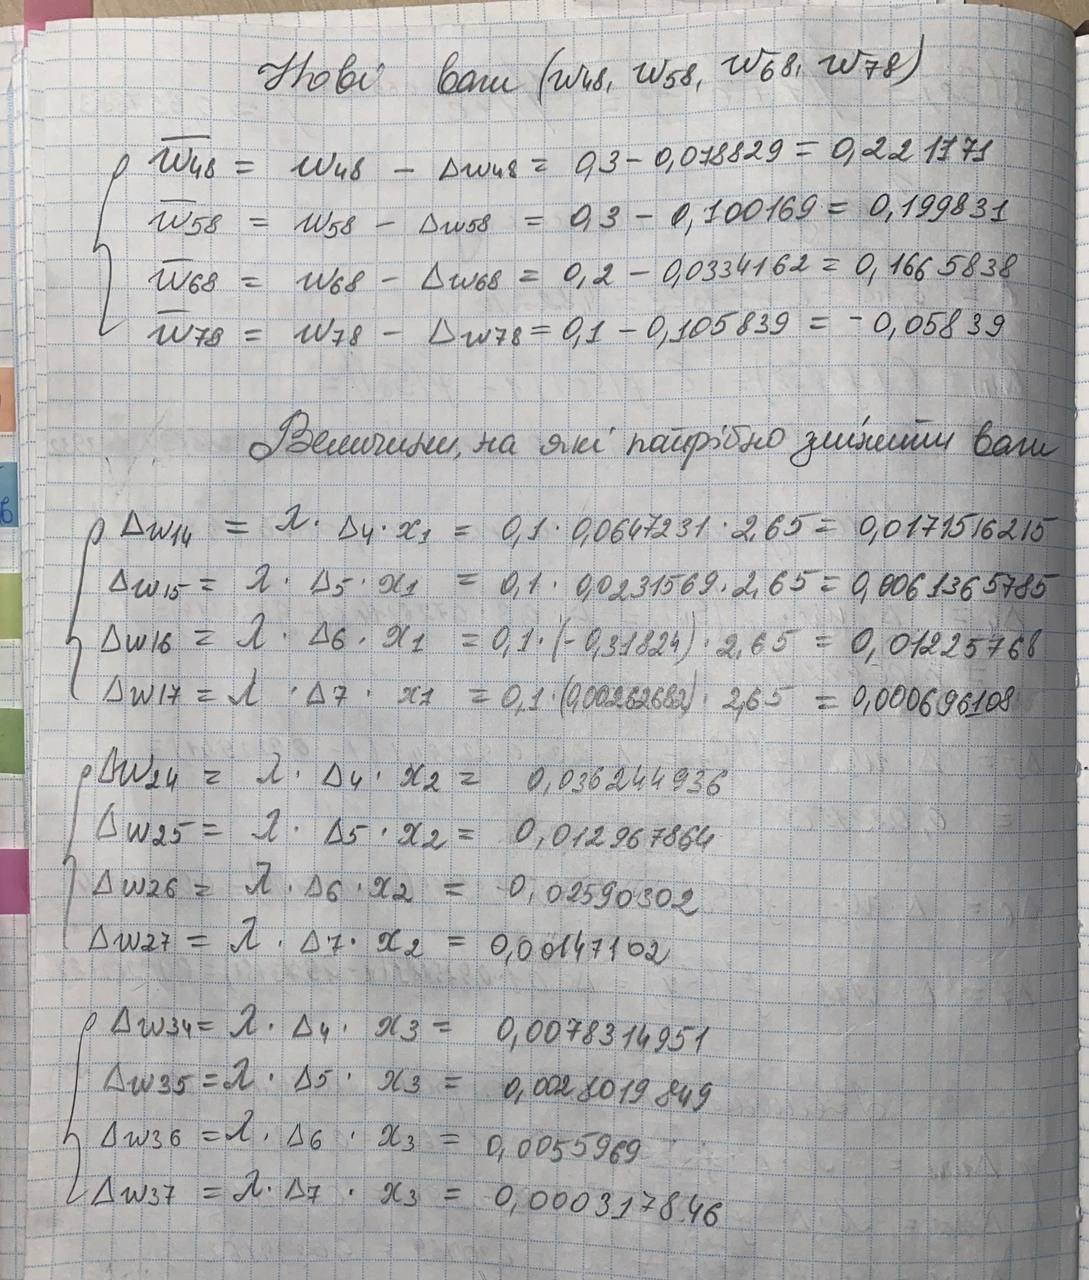 Нові ваги (w48, w58, w68, w78)
w̅48 = w48 − Δw48 = 0,3 − 0,078829 = 0,221171
w̅58 = w58 − Δw58 = 0,3 − 0,100169 = 0,199831
w̅68 = w68 − Δw68 = 0,2 − 0,0334162 = 0,1665838
w̅78 = w78 − Δw78 = 0,1 − 0,105839 = -0,05839
Величини, на які потрібно змінити ваги
Δw14 = λ · Δ4 · x1 = 0,1 · 0,0647231 · 2,65 = 0,0171516215
Δw15 = λ · Δ5 · x1 = 0,1 · 0,0231569 · 2,65 = 0,0061365785
Δw16 = λ · Δ6 · x1 = 0,1 · (-0,31824) · 2,65 = 0,01225768
Δw17 = λ · Δ7 · x1 = 0,1 · (0,00262682) · 2,65 = 0,000696108
Δw24 = λ · Δ4 · x2 = 0,036244936
Δw25 = λ · Δ5 · x2 = 0,012967864
Δw26 = λ · Δ6 · x2 = 0,02590302
Δw27 = λ · Δ7 · x2 = 0,00147102
Δw34 = λ · Δ4 · x3 = 0,0078314951
Δw35 = λ · Δ5 · x3 = 0,0028019849
Δw36 = λ · Δ6 · x3 = 0,0055969
Δw37 = λ · Δ7 · x3 = 0,000317846